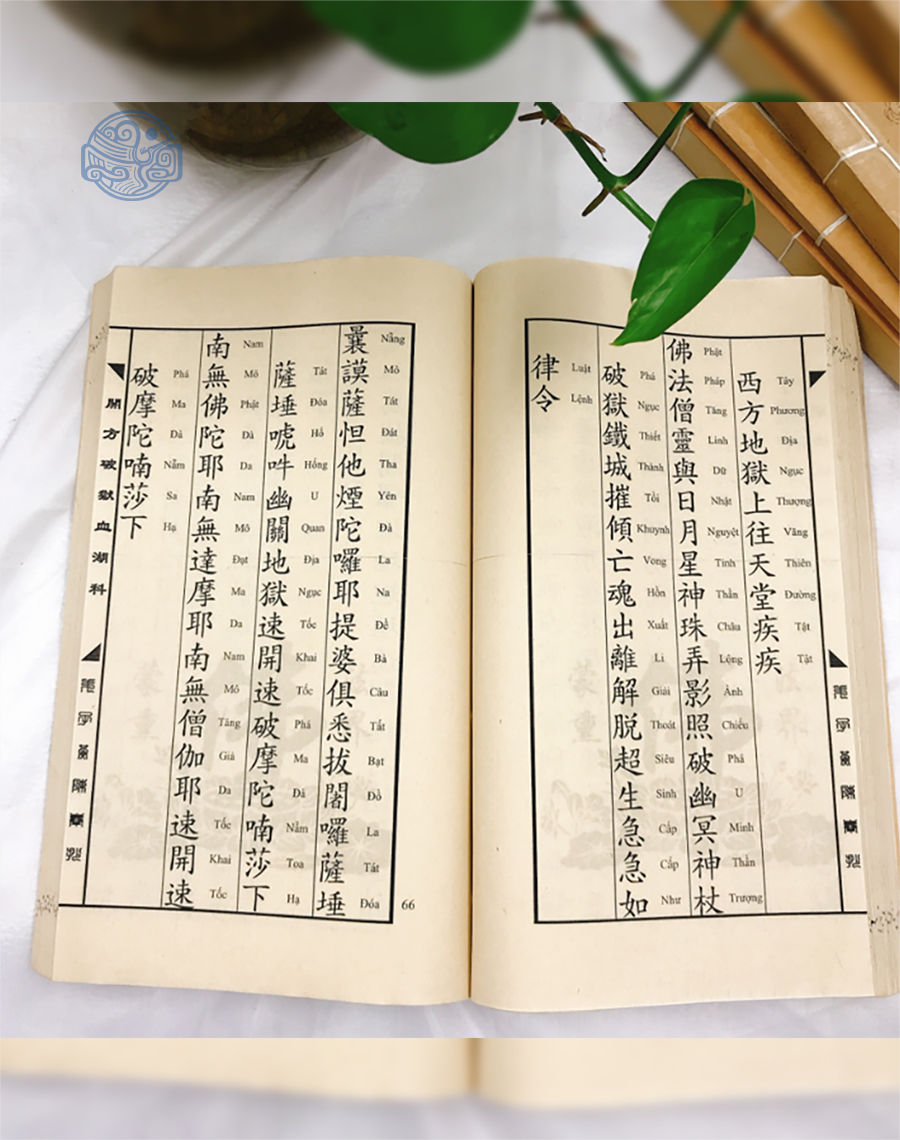 西方地獄上往天堂疾疾
Tây Phương Địa Ngục Thượng Vãng Thiên Đường Tật Tật
佛法僧靈與日月星神珠弄影照破幽冥神杖
Phật Pháp Tăng Linh Dữ Nhật Nguyệt Tinh Thần Châu Lộng Ảnh Chiếu Phá U Minh Thần Trượng
破獄鐵城摧傾亡魂出離解脱超生急急如
Phá Ngục Thiết Thành Tồi Khuynh Vong Hồn Xuất Li Giải Thoát Siêu Sinh Cấp Cấp Như
律令
Luật Lệnh
曩謨薩怛他煙陀囉耶提婆俱悉拔闍囉薩埵
Nẵng Mô Tát Đát Tha Yên Đà La Na Đề Bà Câu Tất Bạt Đồ La Tát Đóa
薩埵唬吽幽關地獄速開速破摩陀喃莎下
Tát Đóa Hổ Hồng U Quan Địa Ngục Tốc Khai Tốc Phá Ma Đà Nẵm Toa Hạ
南無佛陀耶南無達摩耶南無僧伽耶速開速
Nam Mô Phật Đà Da Nam Mô Đạt Ma Da Nam Mô Tăng Già Da Tốc Khai Tốc
破摩陀喃莎下
Phá Ma Đà Nẵm Sa Hạ
開方破獄血湖科
66